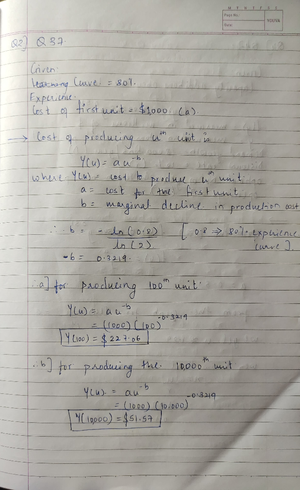 Page No.:
Date:
YOUVA
Q2] Q 37
Given
Learning Curve = 80%.
Experience
Cost of first unit = $1000 (a).
→ Cost of producing uth unit is
Y(u) = au^-b
where Y(u) = cost to produce uth unit
a = cost for the first unit
b = marginal decline in production cost
∴ b = - ln(0.8) / ln(2) [0.8 → 80% experience curve].
-b = 0.3219
a] for producing 100th unit:
Y(u) = au^-b
= (1000)(100)^-0.3219
Y(100) = $227.06
b] for producing the 10,000th unit
Y(u) = au^-b
= (1000)(10,000)^-0.3219
Y(10000) = $51.57